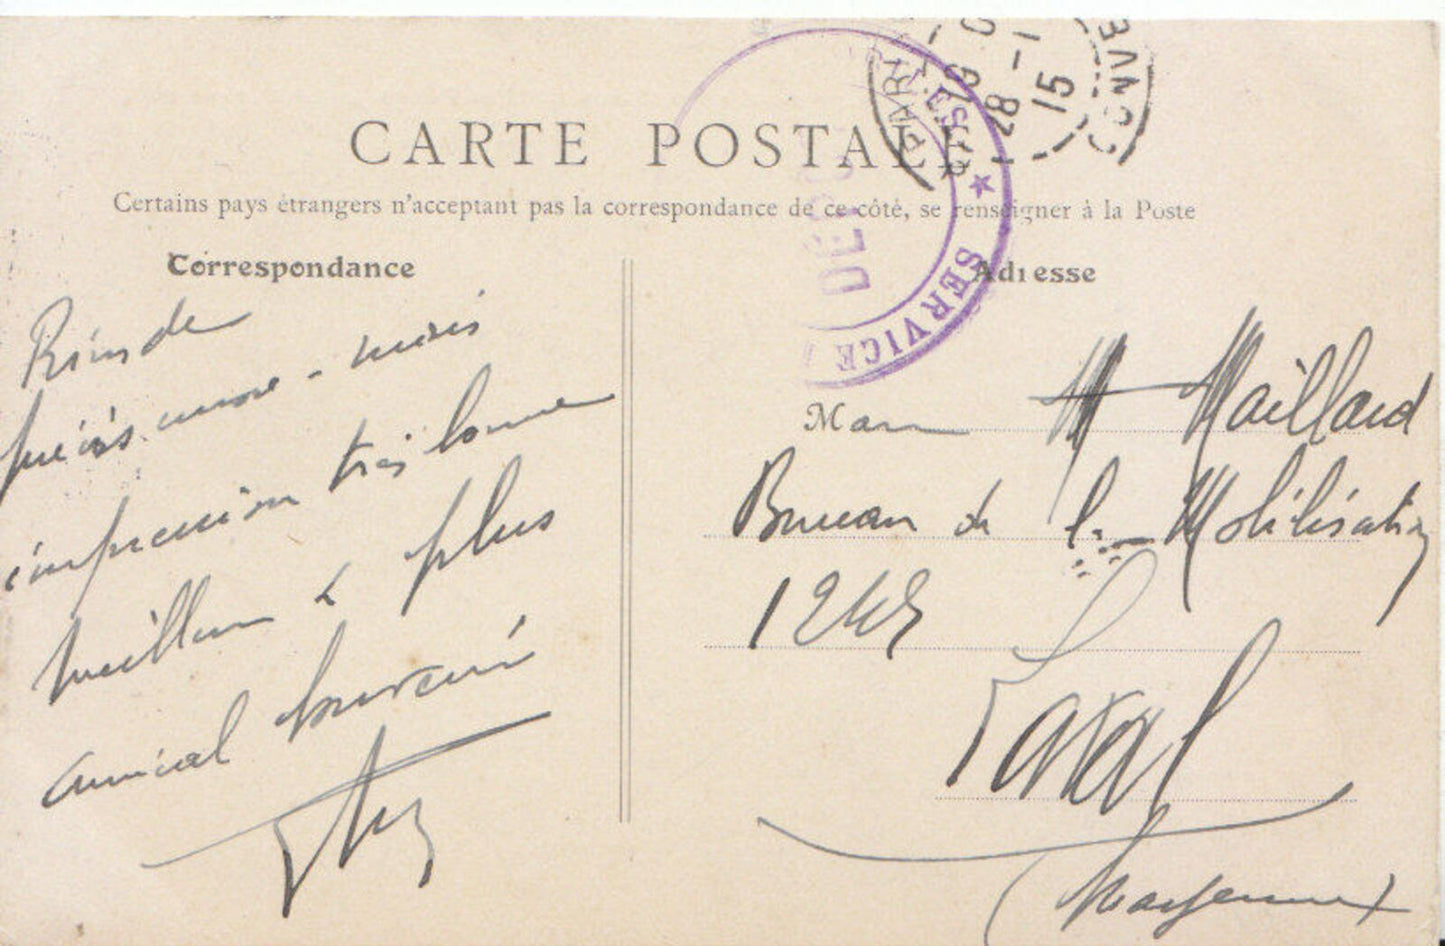 CARTE POSTALE
Certains pays étrangers n'acceptant pas la correspondance de ce côté, se renseigner à la Poste
Correspondance
Rien de
précis encore - mais
impression très bonne
meilleur & plus
amical souvenir
Adresse
M Maillard
Bureau de la Mobilisation
124e
Laval
(Mayenne)
PARI
28 - 1
15
CONVE
ES * SERVICE
DÉPÔ